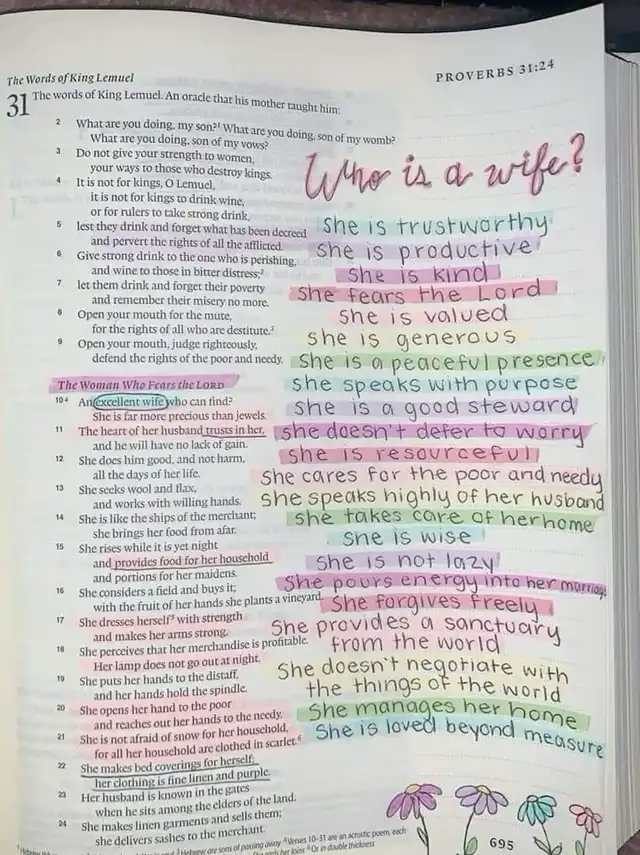 The Words of King Lemuel
PROVERBS 31:24
31 The words of King Lemuel. An oracle that his mother taught him:
2 What are you doing, my son?¹ What are you doing, son of my womb?
What are you doing, son of my vows?
3 Do not give your strength to women,
your ways to those who destroy kings.
4 It is not for kings, O Lemuel,
it is not for kings to drink wine,
or for rulers to take strong drink,
5 lest they drink and forget what has been decreed
and pervert the rights of all the afflicted.
6 Give strong drink to the one who is perishing,
and wine to those in bitter distress;²
7 let them drink and forget their poverty
and remember their misery no more.
8 Open your mouth for the mute,
for the rights of all who are destitute.³
9 Open your mouth, judge righteously,
defend the rights of the poor and needy.
The Woman Who Fears the LORD
10⁴ An excellent wife who can find?
She is far more precious than jewels.
11 The heart of her husband trusts in her,
and he will have no lack of gain.
12 She does him good, and not harm,
all the days of her life.
13 She seeks wool and flax,
and works with willing hands.
14 She is like the ships of the merchant;
she brings her food from afar.
15 She rises while it is yet night
and provides food for her household
and portions for her maidens.
16 She considers a field and buys it;
with the fruit of her hands she plants a vineyard.
17 She dresses herself⁵ with strength
and makes her arms strong.
18 She perceives that her merchandise is profitable.
Her lamp does not go out at night.
19 She puts her hands to the distaff,
and her hands hold the spindle.
20 She opens her hand to the poor
and reaches out her hands to the needy.
21 She is not afraid of snow for her household,
for all her household are clothed in scarlet.⁶
22 She makes bed coverings for herself;
her clothing is fine linen and purple.
23 Her husband is known in the gates
when he sits among the elders of the land.
24 She makes linen garments and sells them;
she delivers sashes to the merchant.
Who is a wife?
She is trustworthy
She is productive
She is kind
She fears the Lord
She is valued
She is generous
She is a peaceful presence
She speaks with purpose
She is a good steward
She doesn't deter to worry
She is resourceful
She cares for the poor and needy
She speaks highly of her husband
She takes care of her home
She is wise
She is not lazy
She pours energy into her marriage
She forgives freely
She provides a sanctuary
from the world
She doesn't negotiate with
the things of the world
She manages her home
She is loved beyond measure
Hebrew are sons of passing away ⁴ Verses 10–31 are an acrostic poem, each
her loins ⁶ Or in double thickness
695